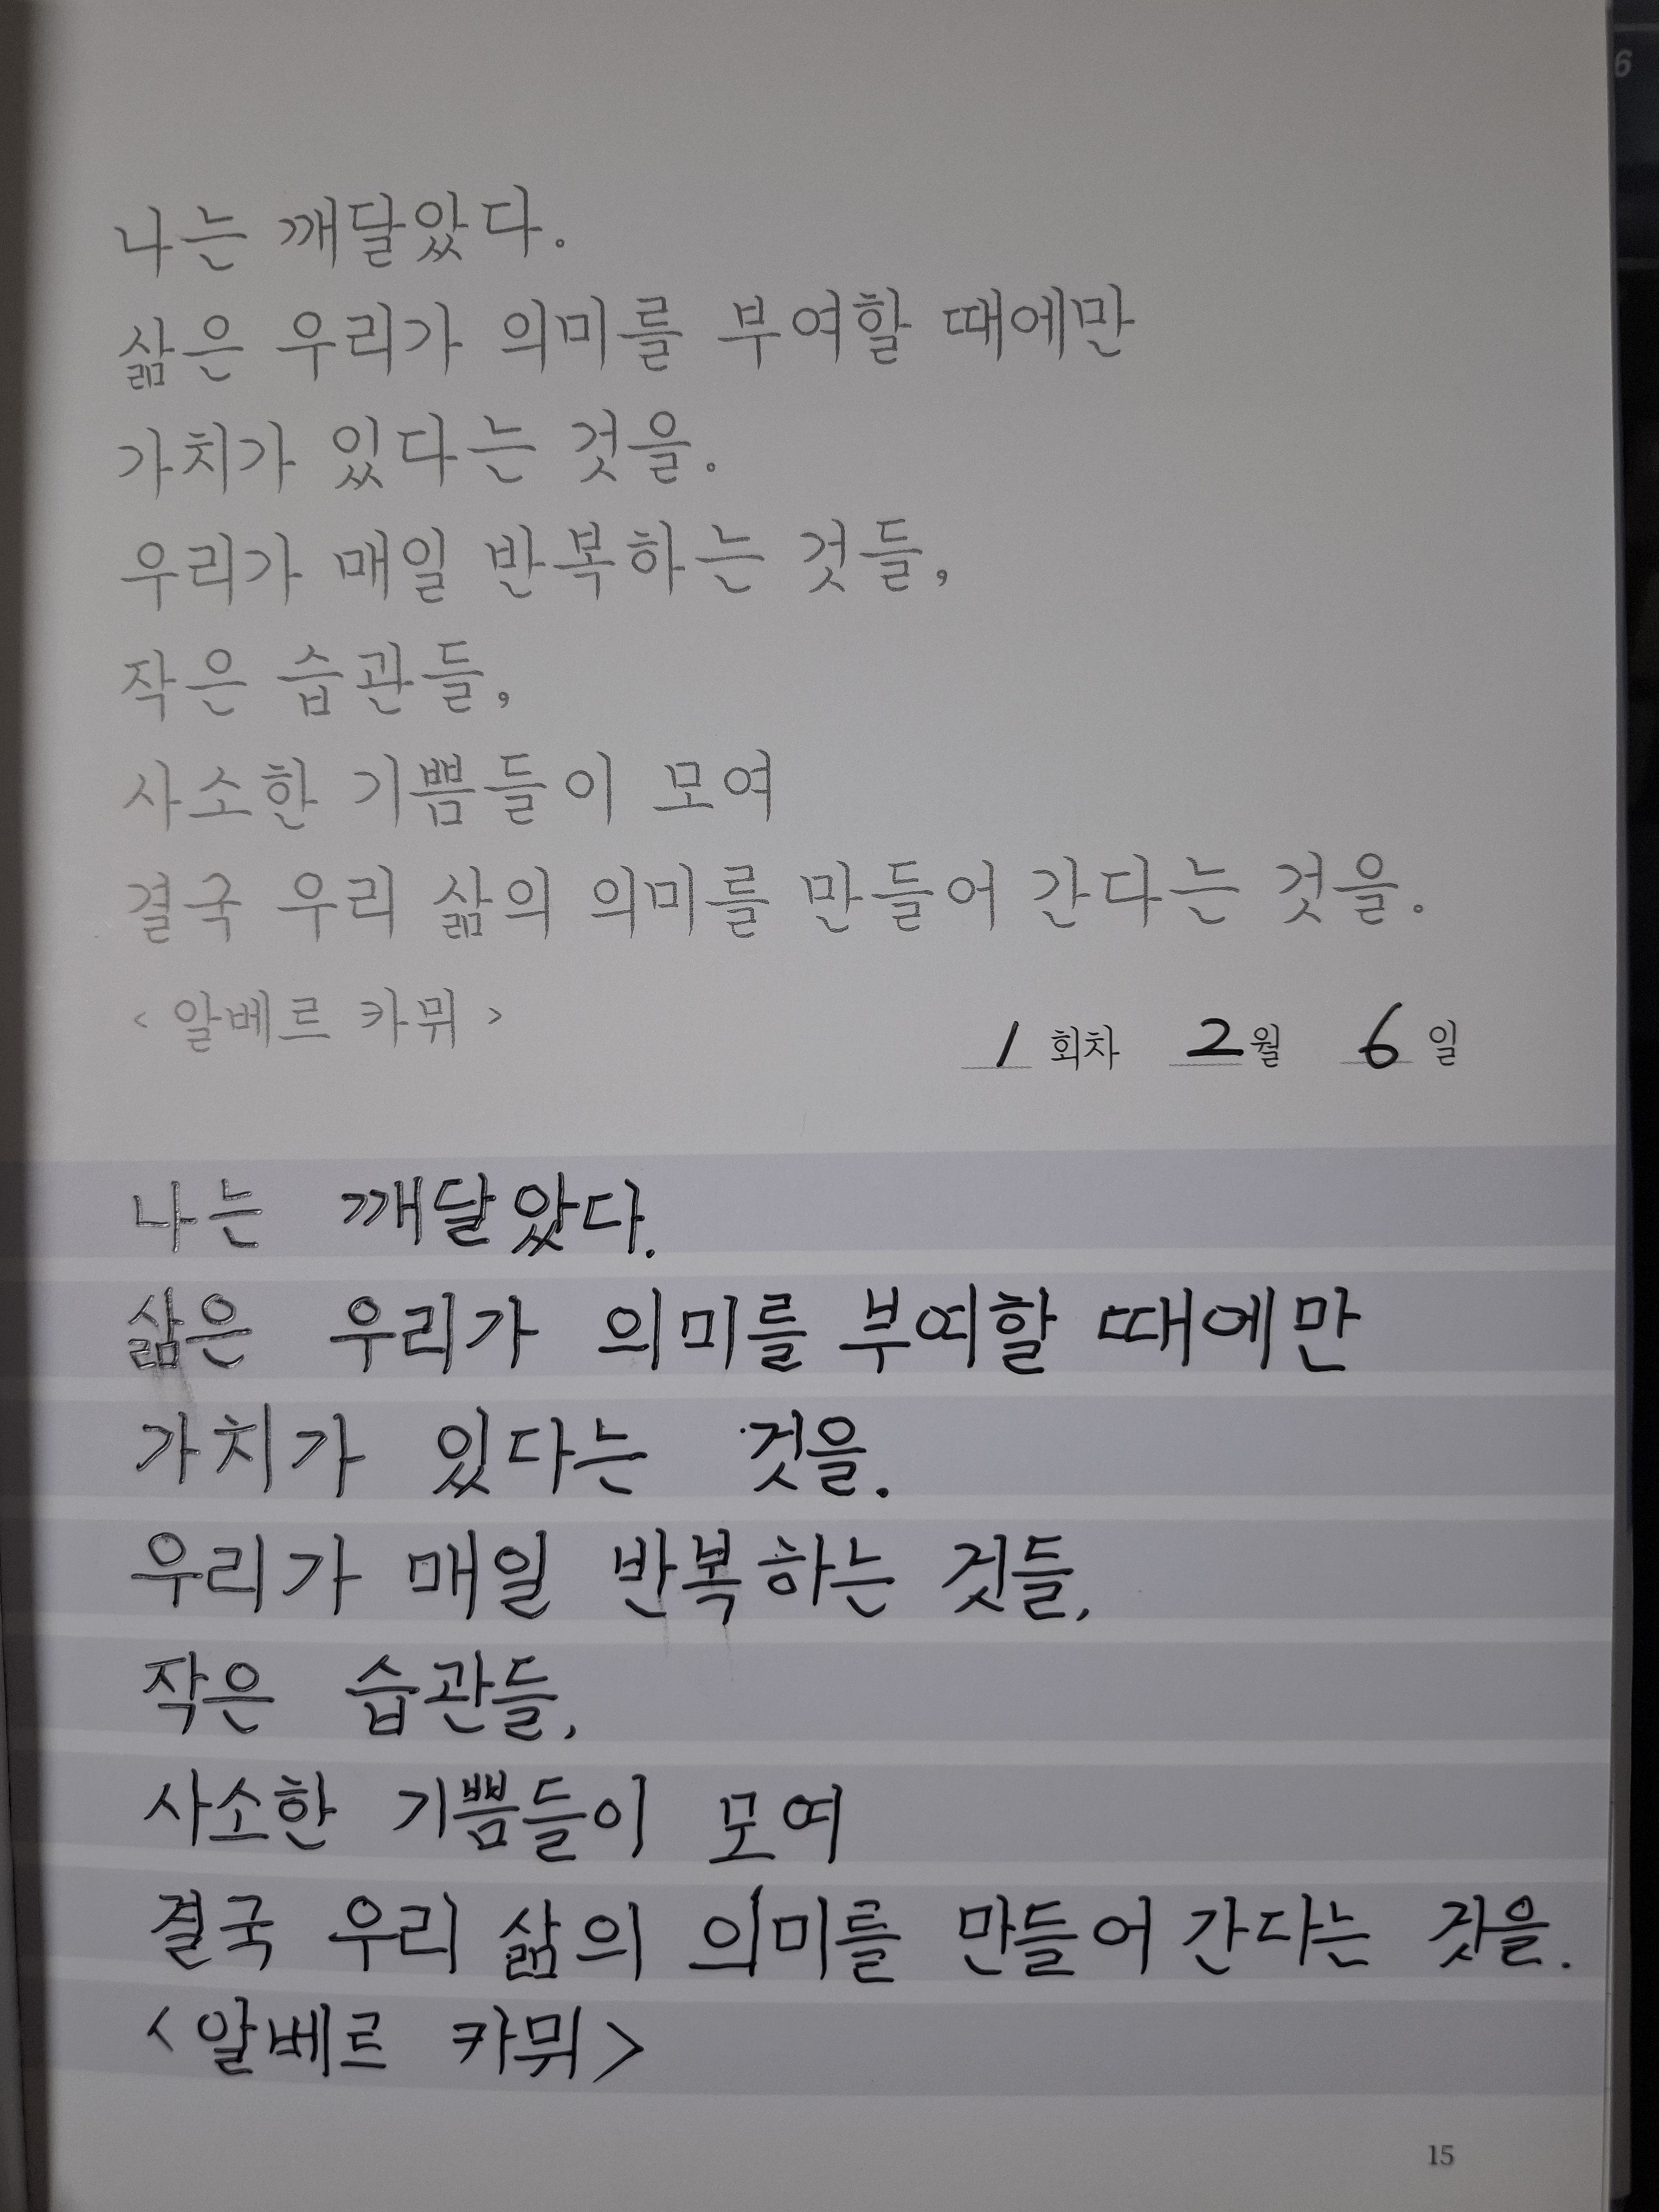 6
나는 깨달았다.
삶은 우리가 의미를 부여할 때에만
가치가 있다는 것을.
우리가 매일 반복하는 것들,
작은 습관들,
사소한 기쁨들이 모여
결국 우리 삶의 의미를 만들어 간다는 것을.
<알베르 카뮈>
1 회차 2월 6 일
나는 깨달았다.
삶은 우리가 의미를 부여할 때에만
가치가 있다는 것을.
우리가 매일 반복하는 것들,
작은 습관들,
사소한 기쁨들이 모여
결국 우리 삶의 의미를 만들어 간다는 것을.
<알베르 카뮈>
15